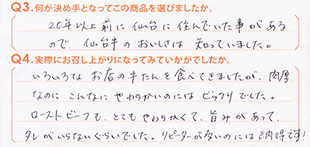 Q3.何が決め手となってこの商品を選びましたか。
20年以上前に仙台に住んでいた事がある
ので、仙台牛のおいしさは知っていました。
Q4.実際にお召し上がりになってみていかがでしたか。
いろいろなお店の牛たんを食べてきましたが、肉厚
なのにこんなにやわらかいのにはビックリでした。
ローストビーフも、とてもやわらかくて、旨みがあって、
タレがいらないぐらいでした。リピーターが多いのには納得です!